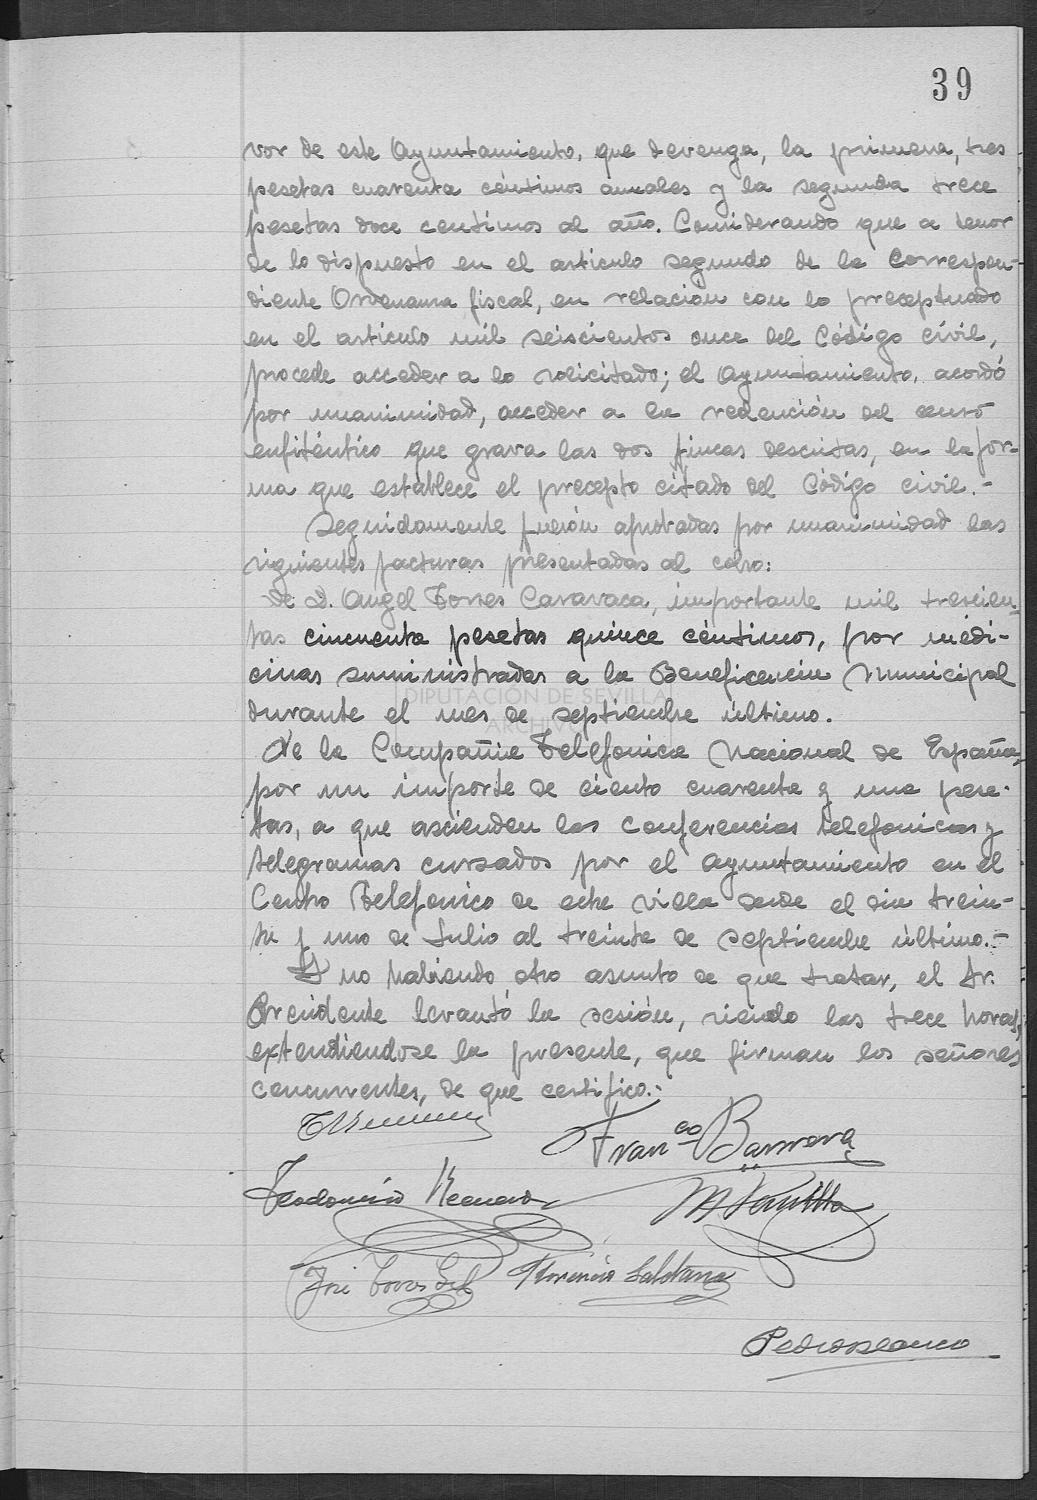 39
vor de este Ayuntamiento, que devenga, la primera, tres
pesetas cuarenta céntimos anuales y la segunda trece
pesetas doce centimos al año. Considerando que a tenor
de lo dispuesto en el articulo segundo de la correspon-
diente Ordenanza fiscal, en relación con lo preceptuado
en el artículo mil seiscientos once del Código civil,
procede acceder a lo solicitado; el Ayuntamiento, acordó
por unanimidad, acceder a la redención del censo
enfitéutico que grava las dos fincas descritas, en la for-
ma que establece el precepto citado del Código civil.-
Seguidamente fueron aprobadas por unanimidad las
siguientes facturas presentadas al cobro:
De D. Angel Torres Caravaca, importante mil trescien-
tas cincuenta pesetas quince céntimos, por medi-
cinas suministradas a la Beneficencia Municipal
durante el mes de septiembre último.
DIPUTACIÓN DE SEVILLA
ARCHIVO
De la Compañia Telefonica Nacional de España,
por un importe de ciento cuarenta y una pese-
tas, a que ascienden las conferencias telefonicas y
telegramas cursados por el Ayuntamiento en el
Centro Telefonico de esta villa desde el dia trein-
ta y uno de Julio al treinta de septiembre último.-
Y no habiendo otro asunto de que tratar, el Sr.
Presidente levantó la sesión, siendo las trece horas,
extendiendose la presente, que firman los señores
concurrentes, de que certifico.:
Franco Barrera
José Torres Gil Florencio Saldaña
Pedro Blanco